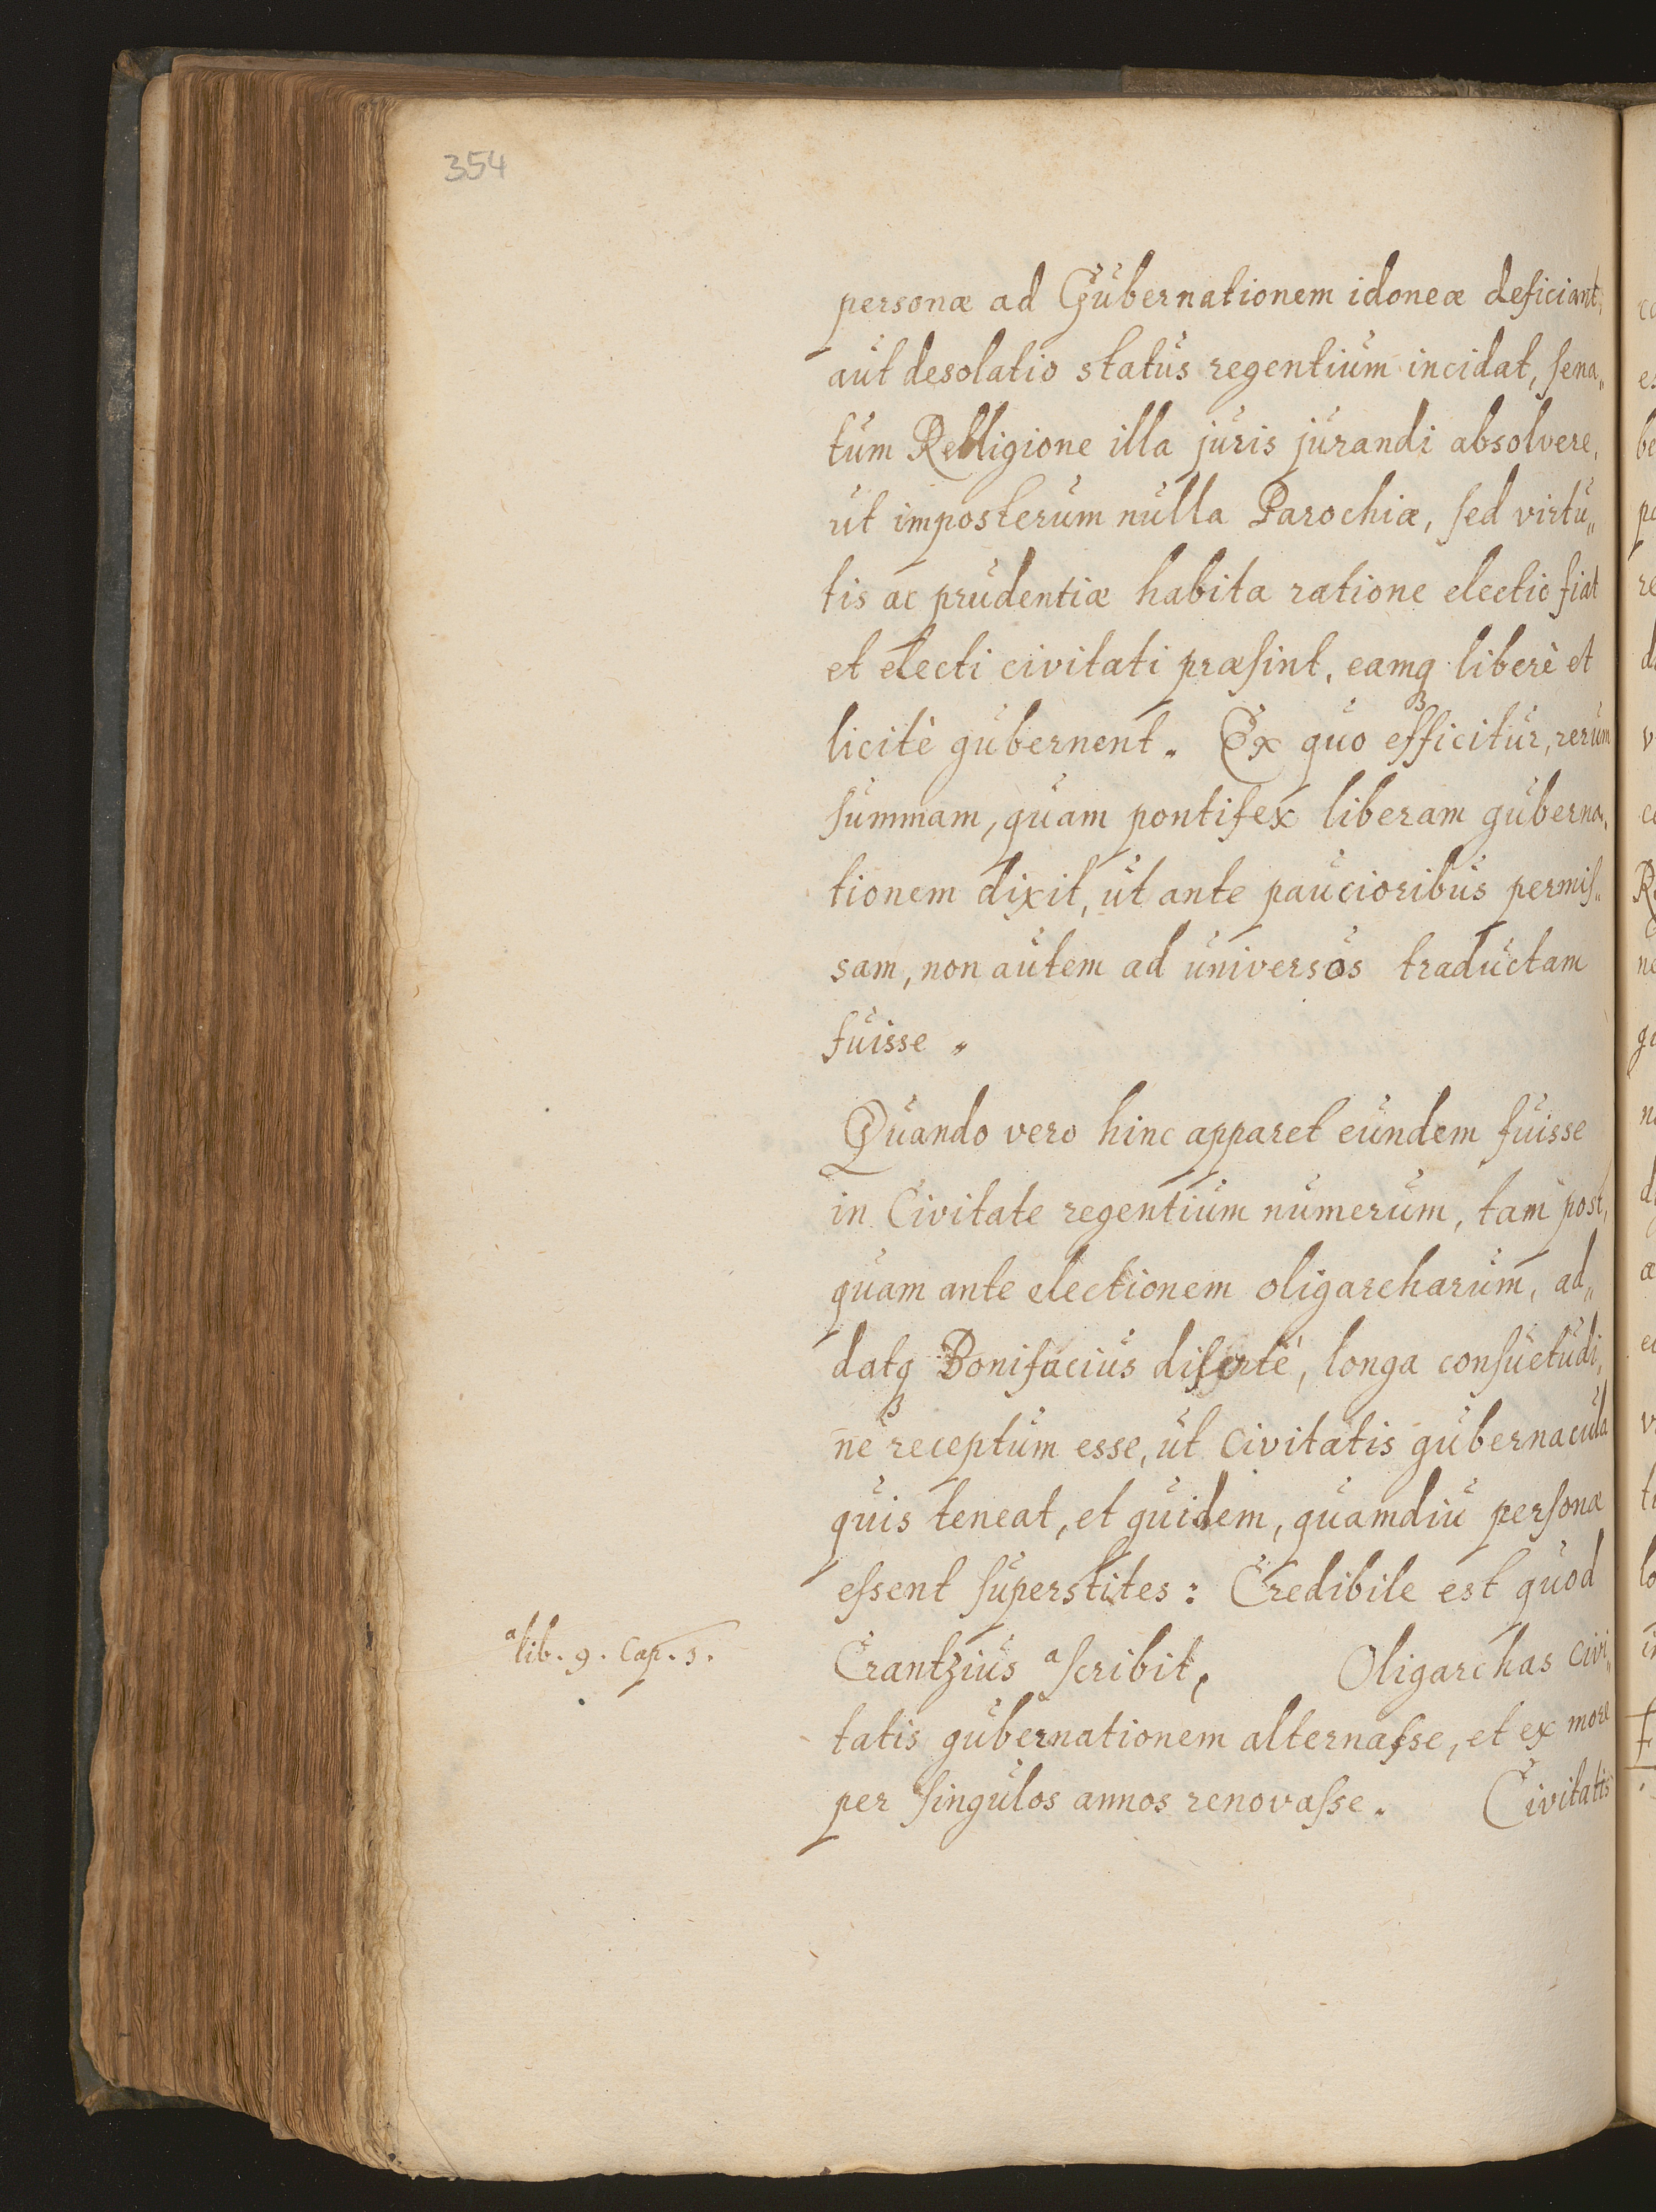 354
personæ ad Gubernationem idoneæ deficiant,
aut desolatio status regentium incidat, sena„
tum Relligione illa juris jurandi absolvere,
ut imposterum nulla Parochiæ, sed virtu„
tis ac prudentiæ habita ratione electio fiat
et electi civitati præsint, eamq₃ liberè et
licitè gubernent. Ex quo efficitur, rerum
summam, quam pontifex liberam guberna„
tionem dixit, ut ante paucioribus permis„
sam, non autem ad universos traductam
fuisse.
Quando vero hinc apparet eundem fuisse
in Civitate regentium numerum, tam post,
quam ante electionem oligarcharum, ad„
datq₃ Bonifacius diserte, longa consuetudi„
ne receptum esse, ut civitatis gubernacula
quis teneat, et quidem, quamdiu personæ
essent superstites: Credibile est quod
a lib. 9. Cap. 5.
Crantzius a scribit, Oligarchas civi„
tatis gubernationem alternasse, et ex more
per singulos annos renovasse.
Civitatis